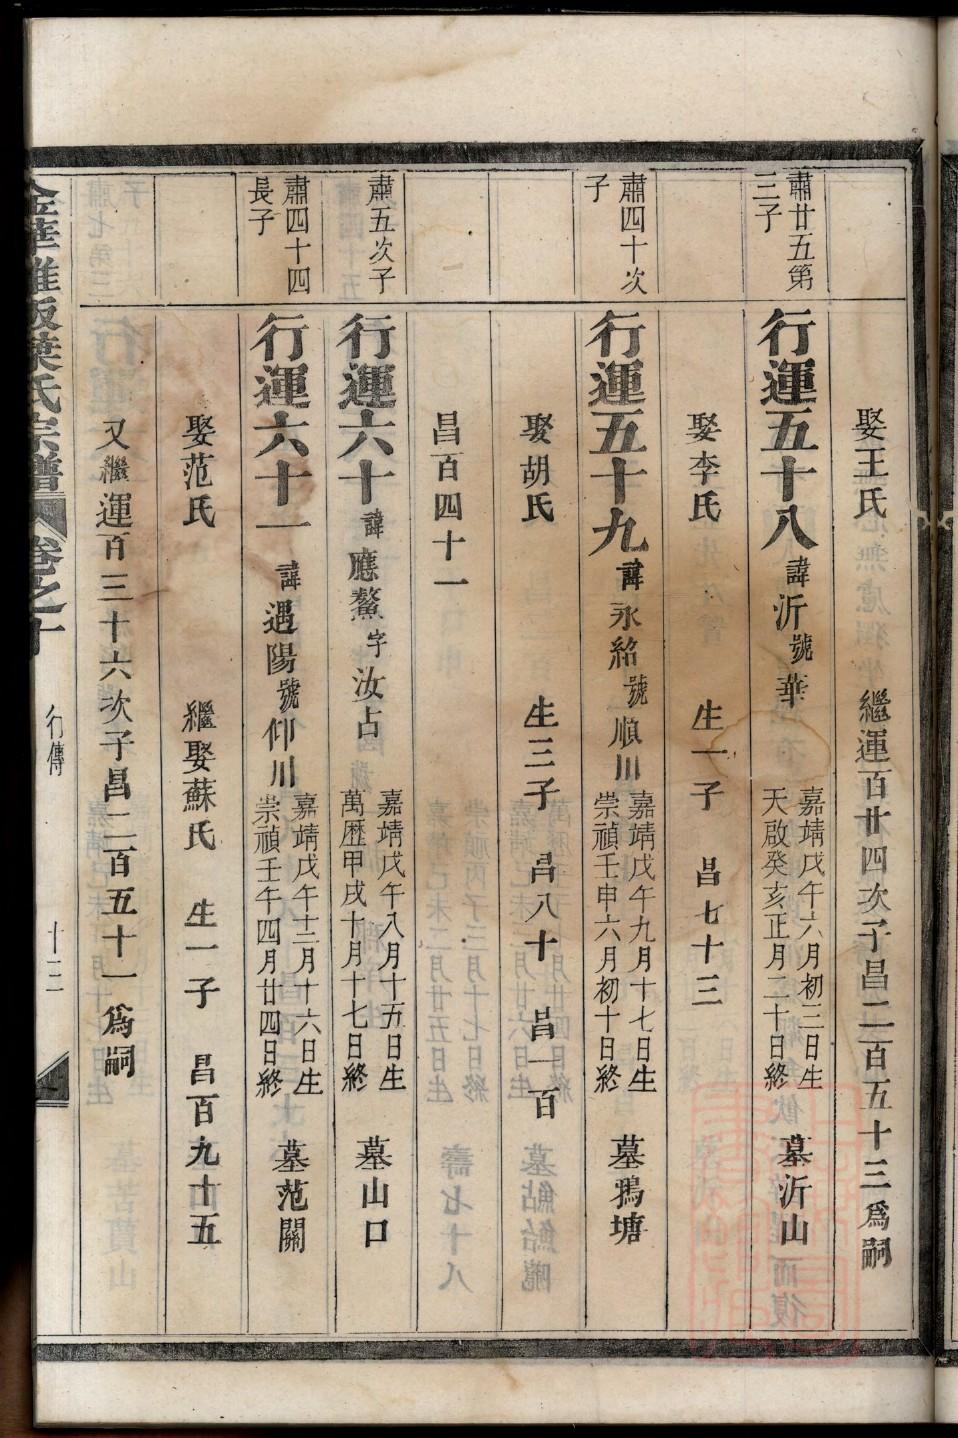 娶王氏 繼運百廿四次子昌二百五十三爲嗣
肅廿五第三子
行運五十八 諱沂號華 嘉靖戊午六月初三日生 天啟癸亥正月二十日終 墓沂山
娶李氏 生一子 昌七十三
肅四十次子
行運五十九 諱永紹號順川 嘉靖戊午九月十七日生 崇禎壬申六月初十日終 墓鴉塘
娶胡氏 生三子 昌八十 昌一百
昌百四十一
肅五次子
行運六十 諱應鰲字汝占 嘉靖戊午八月十五日生 萬歷甲戌十月十七日終 墓山口
肅四十四長子
行運六十一 諱遇陽號仰川 嘉靖戊午十二月十六日生 崇禎壬午四月廿四日終 墓范關
娶范氏 繼娶蘇氏 生一子 昌百九十五
又繼運百三十六次子昌二百五十一爲嗣
金華 阪葉氏宗譜 卷之十 行傳 十三